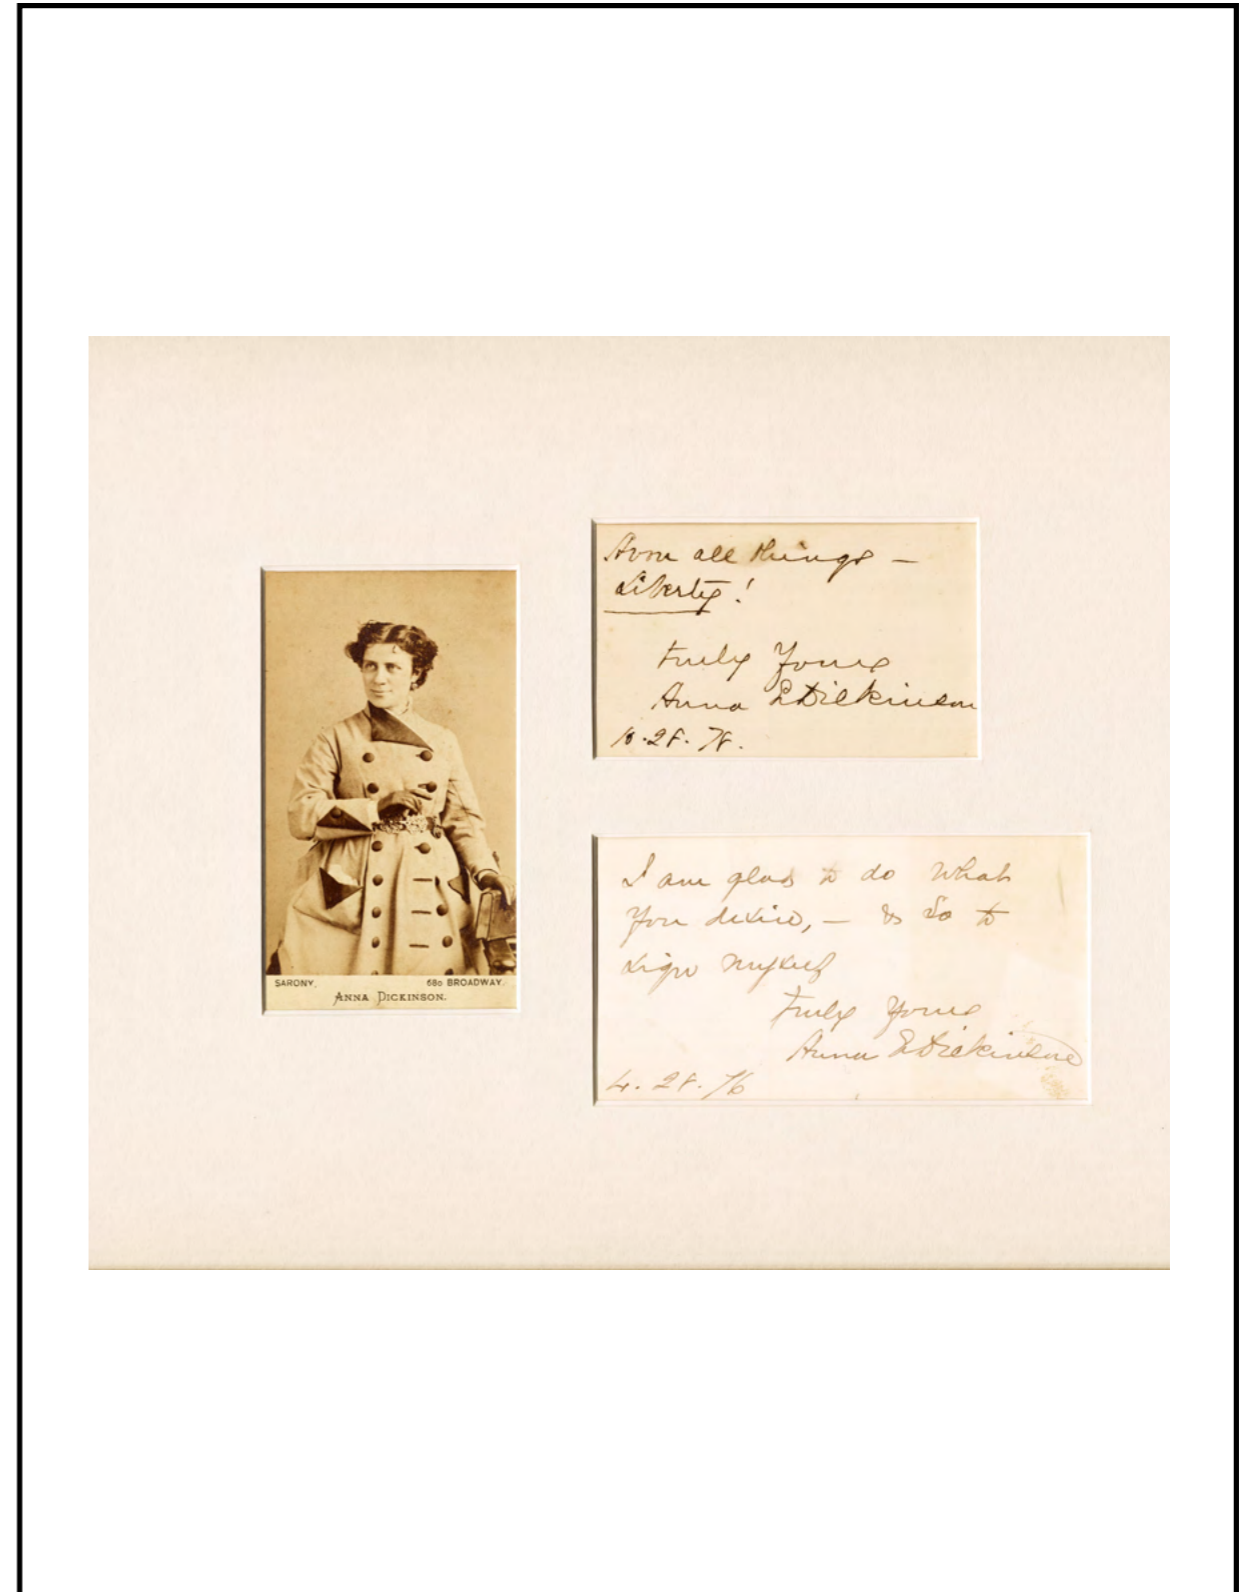 SARONY, 680 BROADWAY.
ANNA DICKINSON.
Above all things –
Liberty!
Truly Yours
Anna E Dickinson
10.28.78.
I am glad to do what
you desire, – & so to
sign myself
Truly Yours
Anna E Dickinson
4.28.76